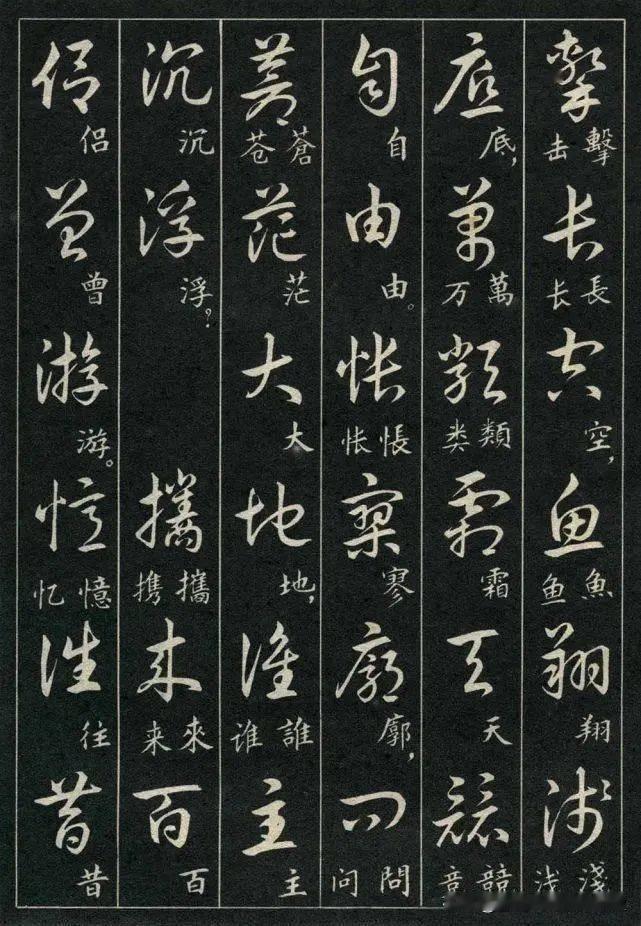 擊长空鱼翔淺
擊击 長长 空， 魚鱼 翔 淺浅
底萬類霜天競
底， 萬万 類类 霜 天 競竞
自由怅寥廓问
自 由。 悵怅 寥 廓， 問问
蒼茫大地誰主
蒼苍 茫 大 地， 誰谁 主
沉浮攜来百
沉 浮？ 攜携 來来 百
侣曾游憶往昔
侣 曾 游。 憶忆 往 昔